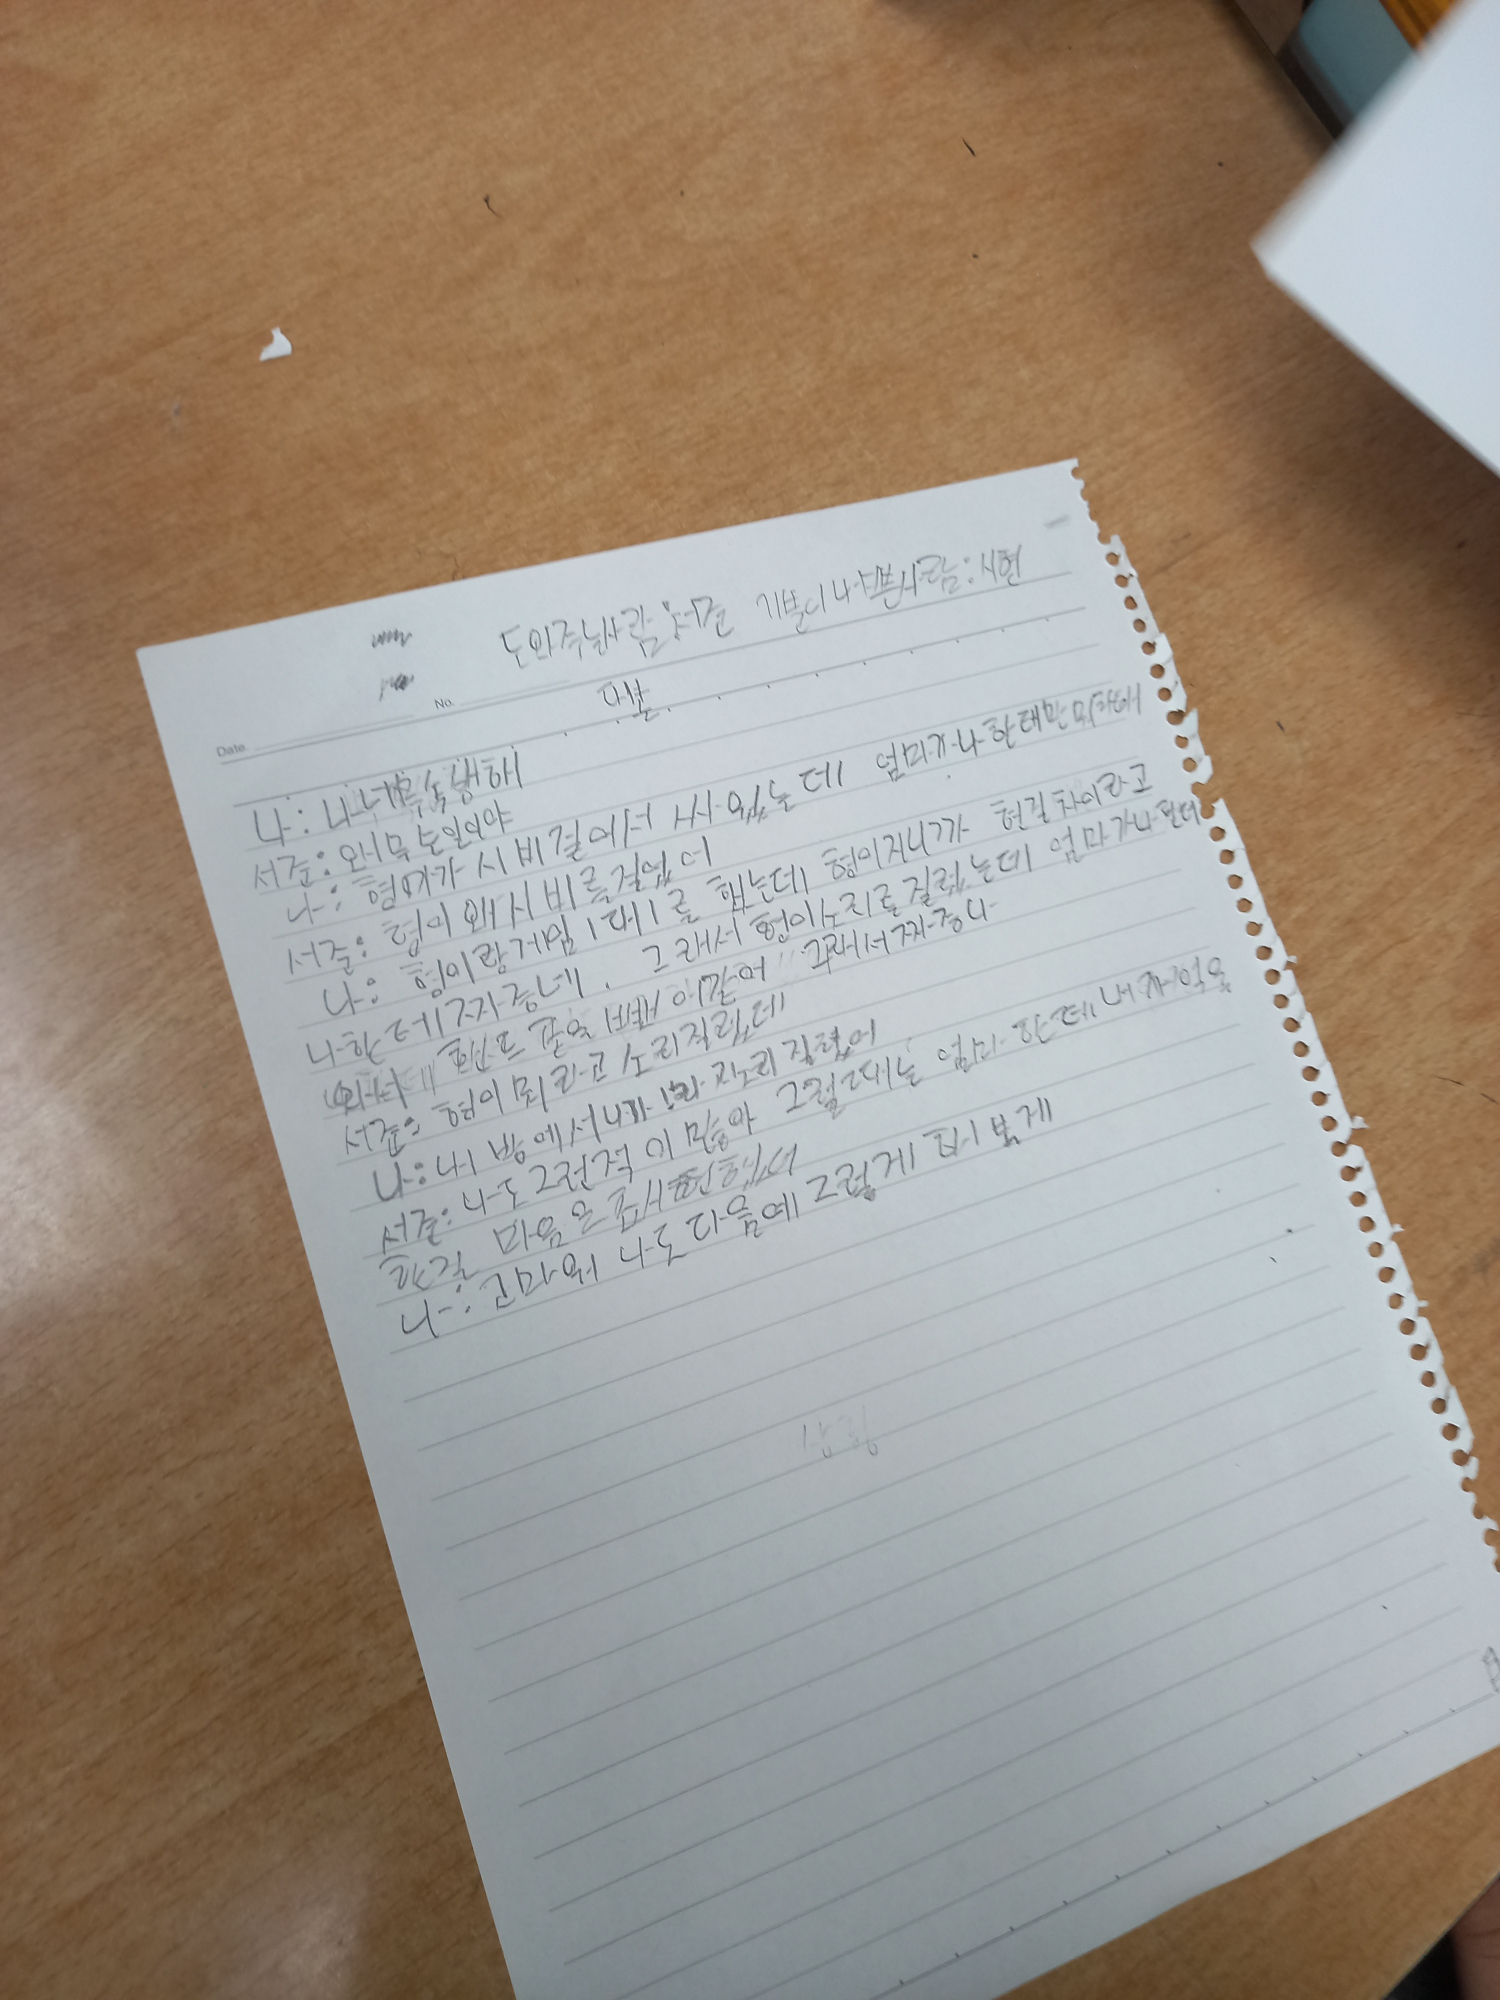 도와주는사람:서준 기분이나쁜사람:시현
No.
대본
Date
나: 나너무속상해
서준: 왜무슨일이야
나: 형아가 시비걸어서 싸웠는데 엄마가나한테만뭐라해
서준: 형이 왜시비를걸었어
나: 형이랑게임 1대1를 했는데 형이지니까 현질차이라고
나한테 짜증내. 그래서 형이소리를질렀는데 엄마가나한테
와서 핸드폰을 빼배 어갔어 그래서짜증나
서준: 형이 뭐라고 소리질렀는데
나: 내 방에서 나가 라 소리 질렀어
서준: 나도그런적이 많아 그럴때는 엄마 한테 내 기억을
솔직 마음을 표시현했어
나: 고마워 나도 다음에 그렇게 해 볼게
상황